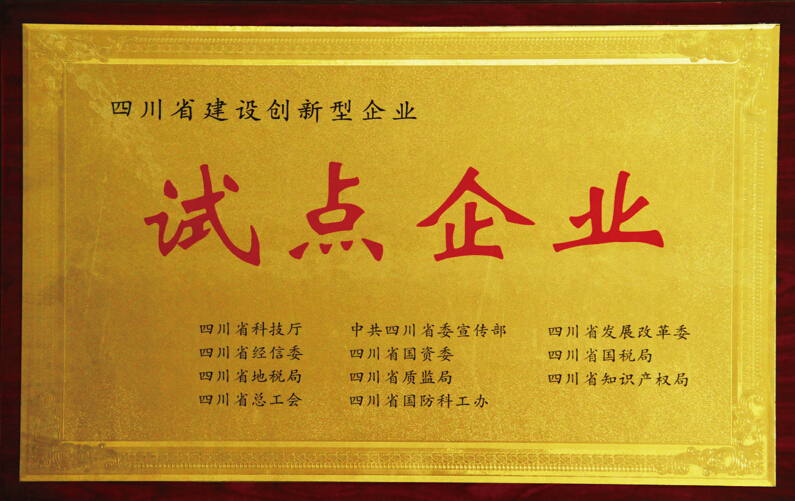 四川省建设创新型企业
试点企业
四川省科技厅 中共四川省委宣传部 四川省发展改革委
四川省经信委 四川省国资委 四川省国税局
四川省地税局 四川省质监局 四川省知识产权局
四川省总工会 四川省国防科工办